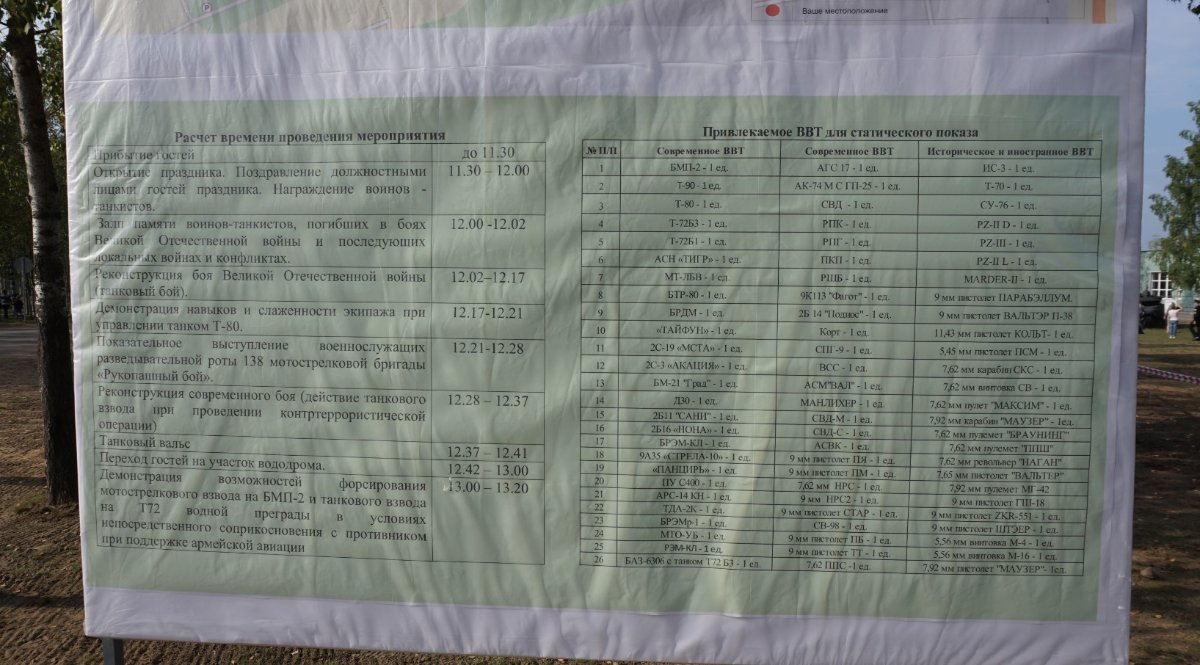 Р
Ваше местоположение
Расчет времени проведения мероприятия
Прибытие гостей до 11.30
Открытие праздника. Поздравление должностными 11.30 – 12.00
лицами гостей праздника. Награждение воинов -
танкистов.
Залп памяти воинов-танкистов, погибших в боях 12.00 -12.02
Великой Отечественной войны и последующих
локальных войнах и конфликтах.
Реконструкция боя Великой Отечественной войны 12.02–12.17
(танковый бой).
Демонстрация навыков и слаженности экипажа при 12.17-12.21
управлении танком Т-80.
Показательное выступление военнослужащих 12.21-12.28
разведывательной роты 138 мотострелковой бригады
«Рукопашный бой».
Реконструкция современного боя (действие танкового 12.28 – 12.37
взвода при проведении контртеррористической
операции)
Танковый вальс 12.37 – 12.41
Переход гостей на участок вододрома. 12.42 – 13.00
Демонстрация возможностей форсирования 13.00 – 13.20
мотострелкового взвода на БМП-2 и танкового взвода
на Т72 водной преграды в условиях
непосредственного соприкосновения с противником
при поддержке армейской авиации
Привлекаемое ВВТ для статического показа
№ П/П Современное ВВТ Современное ВВТ Историческое и иностранное ВВТ
1 БМП-2 - 1 ед. АГС 17 - 1 ед. ИС-3 - 1 ед.
2 Т-90 - 1 ед. АК-74 М С ГП-25 - 1 ед. Т-70 - 1 ед.
3 Т-80 - 1 ед. СВД - 1 ед. СУ-76 - 1 ед.
4 Т-72Б3 - 1 ед. РПК - 1 ед. PZ-II D - 1 ед.
5 Т-72Б1 - 1 ед. РПГ - 1 ед. PZ-III - 1 ед.
6 АСН «ТИГР» - 1 ед. ПКП - 1 ед. PZ-II L - 1 ед.
7 МТ-ЛБВ - 1 ед. РШБ - 1 ед. MARDER-II - 1 ед.
8 БТР-80 - 1 ед. 9К113 "Фагот" - 1 ед. 9 мм пистолет ПАРАБЭЛЛУМ.
9 БРДМ - 1 ед. 2Б 14 "Поднос" - 1 ед. 9 мм пистолет ВАЛЬТЭР П-38
10 «ТАЙФУН» - 1 ед. Корт - 1 ед. 11,43 мм пистолет КОЛЬТ- 1 ед.
11 2С-19 «МСТА» - 1 ед. СПГ-9 - 1 ед. 5,45 мм пистолет ПСМ - 1 ед.
12 2С-3 «АКАЦИЯ» - 1 ед. ВСС - 1 ед. 7,62 мм карабин СКС - 1 ед.
13 БМ-21 "Град" - 1 ед. АСМ"ВАЛ" - 1 ед. 7,62 мм винтовка СВ - 1 ед.
14 Д30 - 1 ед. МАНЛИХЕР - 1 ед. 7,62 мм пулет "МАКСИМ" - 1 ед.
15 2Б11 "САНИ" - 1 ед. СВД-М - 1 ед. 7,92 мм карабин "МАУЗЕР" - 1ед.
16 2Б16 «НОНА» - 1 ед. СВД-С - 1 ед. 7,62 мм пулемет "БРАУНИНГ"
17 БРЭМ-КЛ - 1 ед. АСВК - 1 ед. 7,62 мм пулемет "ППШ"
18 9А35 «СТРЕЛА-10» - 1 ед. 9 мм пистолет ПЯ - 1 ед. 7,62 мм револьвер "НАГАН"
19 «ПАНЦИРЬ» - 1 ед. 9 мм пистолет ПМ - 1 ед. 7,65 мм пистолет "ВАЛЬТЕР"
20 ПУ С400 - 1 ед. 7,62 мм НРС - 1 ед. 7,92 мм пулемет МГ-42
21 АРС-14 КН - 1 ед. 9 мм НРС2 - 1 ед. 9 мм пистолет ГШ-18
22 ТДА-2К - 1 ед. 9 мм пистолет СТАР - 1 ед. 9 мм пистолет ZKR-551 - 1 ед.
23 БРЭМр-1 - 1 ед. СВ-98 - 1 ед. 9 мм пистолет ШТЭЕР - 1 ед.
24 МТО-УБ - 1 ед. 9 мм пистолет ПБ - 1 ед. 5,56 мм винтовка М-4 - 1 ед.
25 РЭМ-КЛ - 1 ед. 9 мм пистолет ТТ - 1 ед. 5,56 мм винтовка М-16 - 1 ед.
26 БАЗ-6306 с танком Т72 Б3 - 1 ед. 7,62 ППС -1 ед. 7,92 мм пистолет "МАУЗЕР"- 1ед.